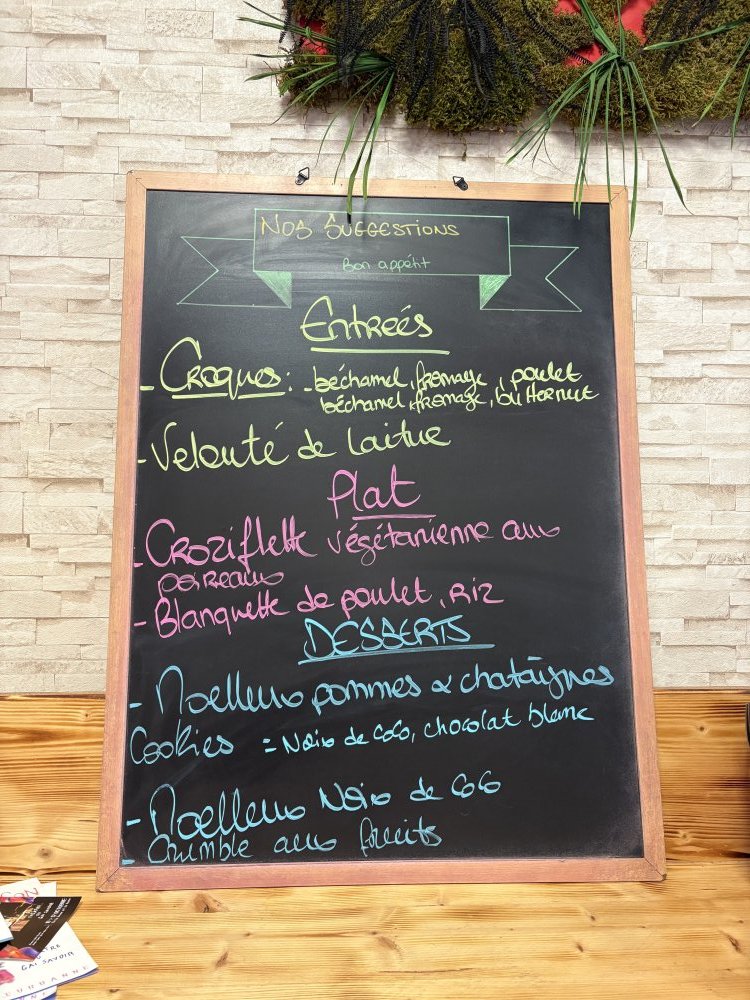 Nos Suggestions
Bon appétit
Entrées
- Croques : - béchamel, fromage, poulet
béchamel, fromage, butternut
- Velouté de laitue
Plat
- Croziflette végétarienne aux
poireaux
- Blanquette de poulet, riz
DESSERTS
- Moelleux pommes & chataîgnes
Cookies = Noix de coco, chocolat blanc
- Moelleux Noix de coco
- Crumble aux fruits
GAI SAVOIR